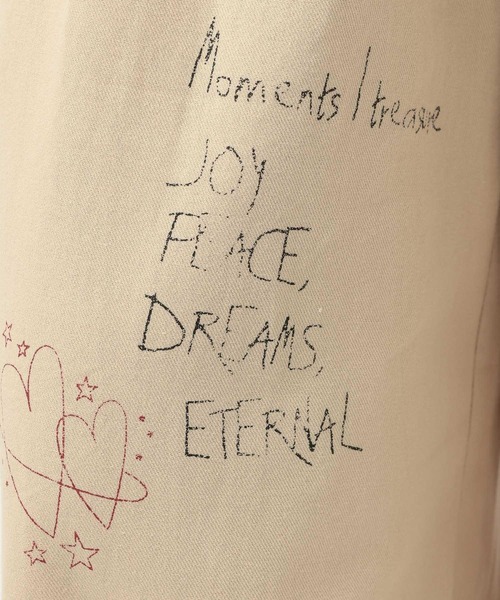 Moments I treasure
JOY
PEACE,
DREAMS,
ETERNAL